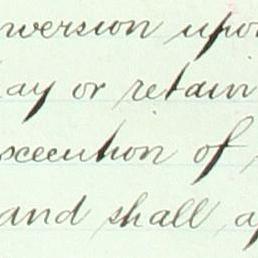 nversion upo
lay or retain
xecution of
and shall a